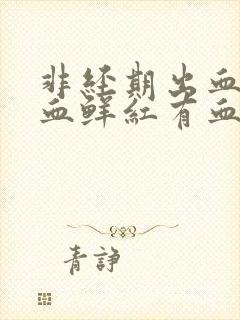 非经期出血
血鲜红有血
青諍